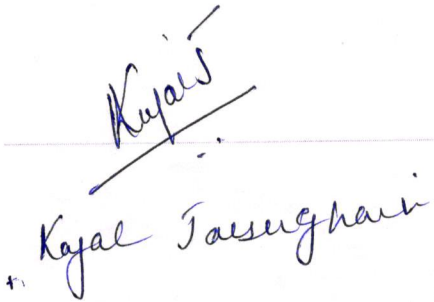 Kajal J
Kajal Jaisinghani